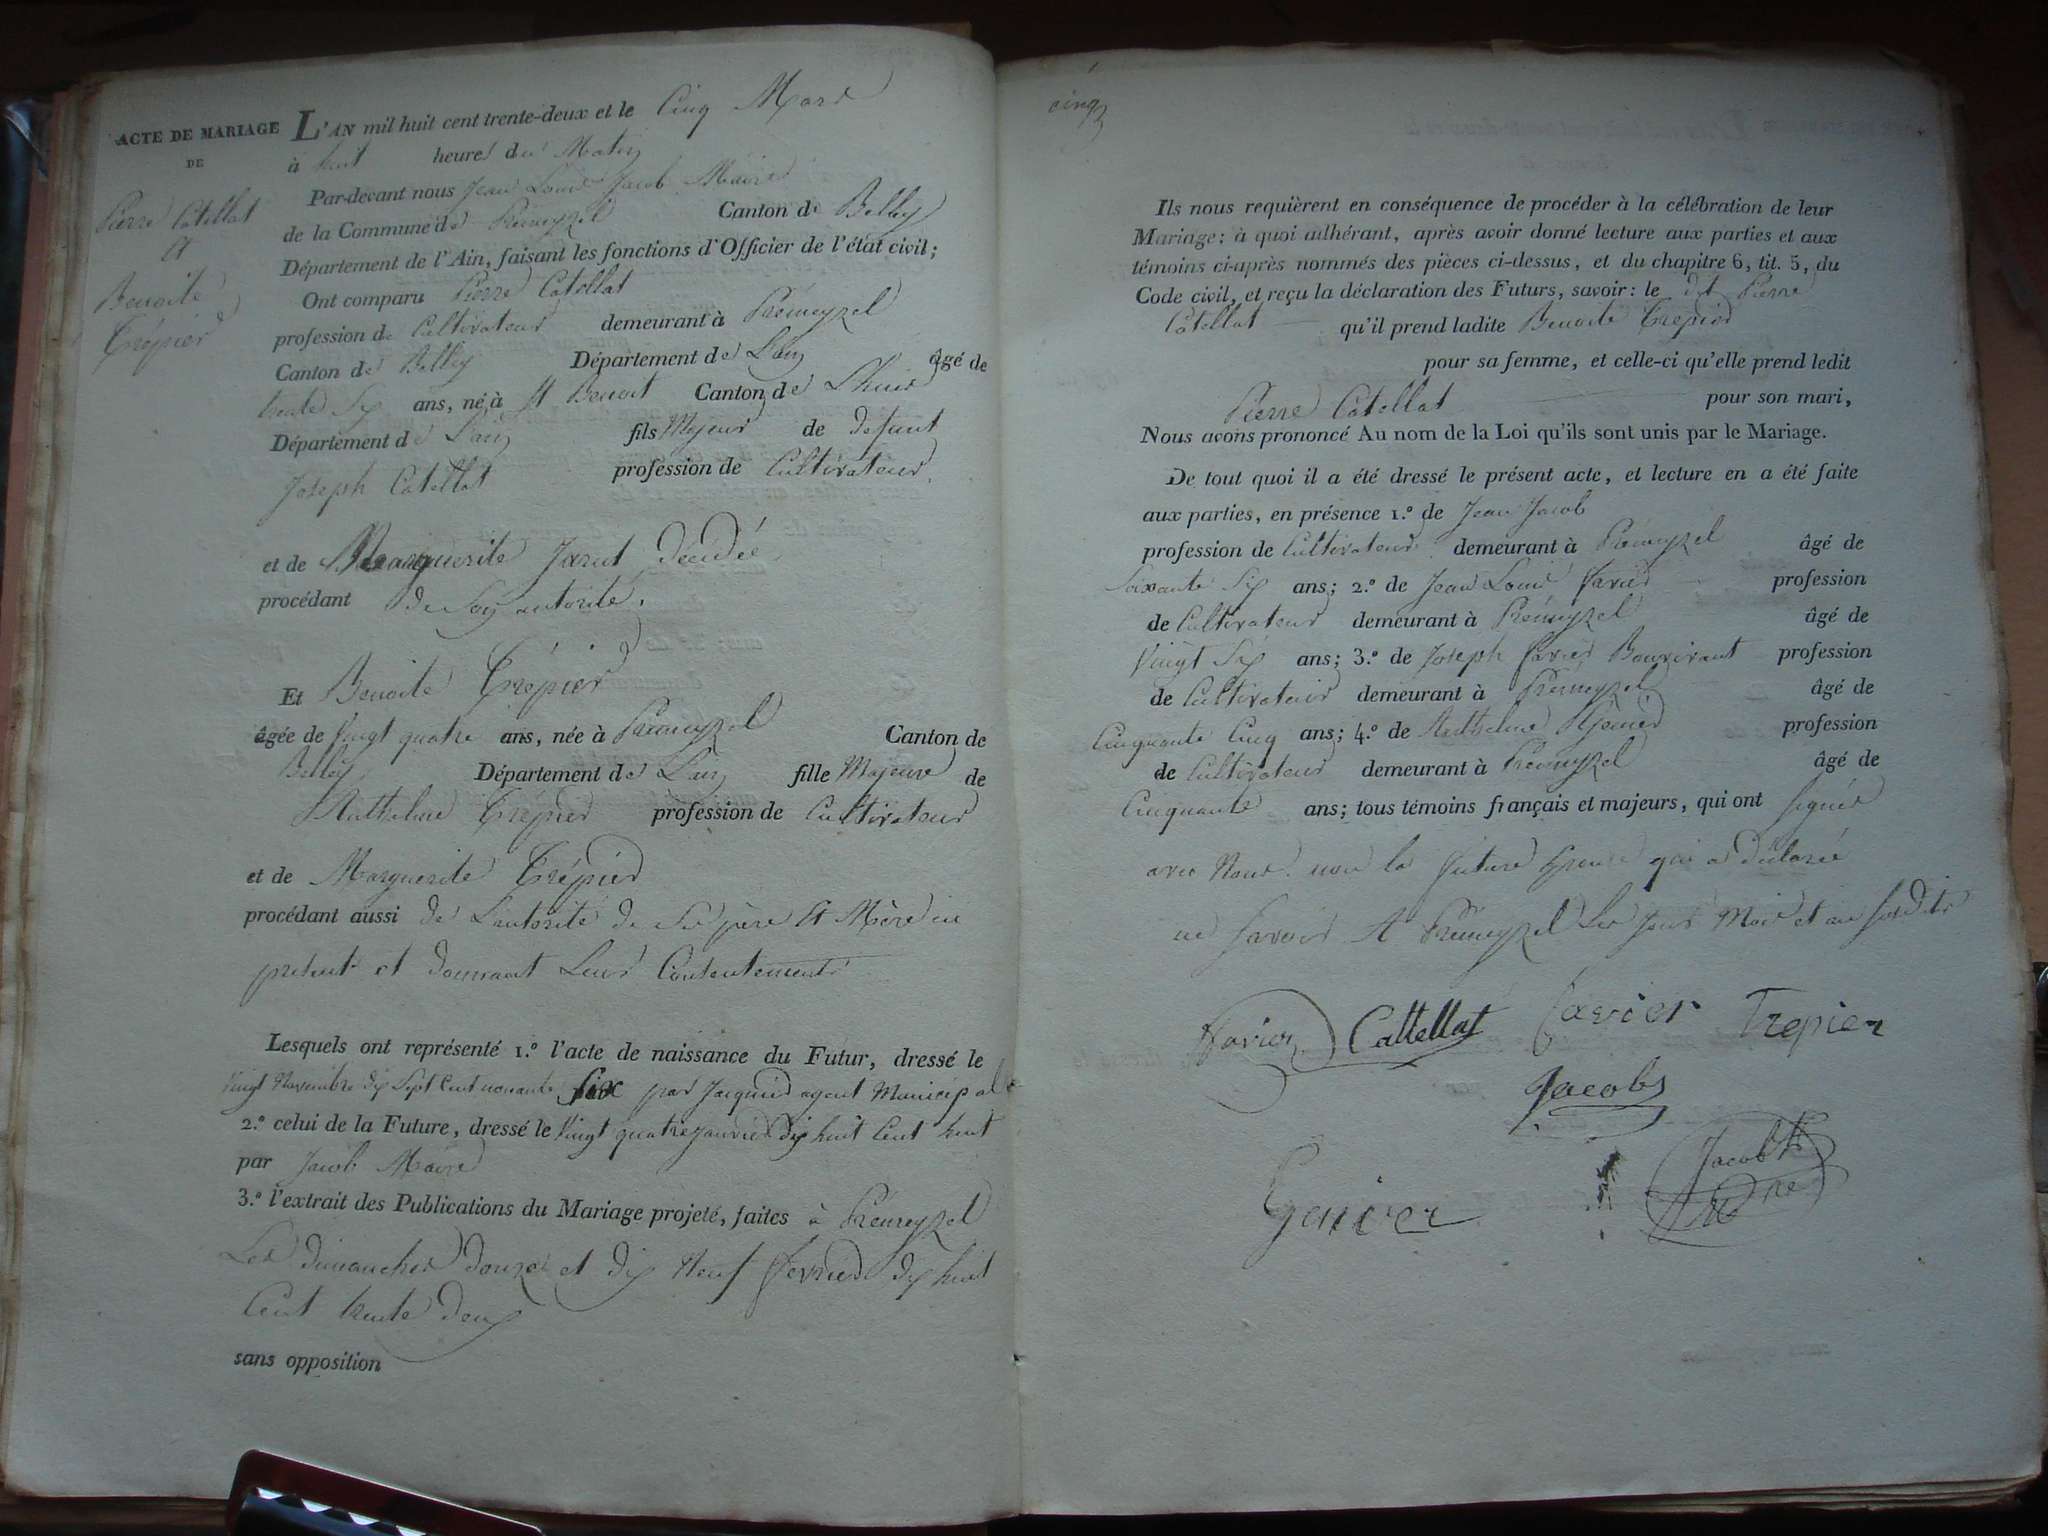 ACTE DE MARIAGE
DE
Pierre Catellat
et
Benoite
Trépier
L'AN mil huit cent trente-deux et le Cinq Mars
à huit heures du Matin
Par-devant nous Jean Louis Jacob Maire
de la Commune de Prémeyzel Canton de Belley
Département de l'Ain, faisant les fonctions d'Officier de l'état civil;
Ont comparu Pierre Catellat
profession de Cultivateur demeurant à Prémeyzel
Canton de Belley Département de L'ain âgé de
trente Six ans, né à St Benoit Canton de Lhuis
Département de L'ain fils Majeur de defunt
Joseph Catellat profession de Cultivateur
et de Marguerite décédée
procédant de Son autorité.
Et Benoite Trépier
âgée de Vingt quatre ans, née à Prémeyzel Canton de
Belley Département de L'ain fille Majeure de
Anthelme Trépier profession de Cultivateur
et de Marguerite Trépier
procédant aussi de L'autorité de Ses père et Mère ici
présent et donnant Leurs Consentements
Lesquels ont représenté 1.º l'acte de naissance du Futur, dressé le
Vingt Novembre dix Sept Cent nonante Six par Jacquier agent Municipal
2.º celui de la Future, dressé le Vingt quatre janvier dix huit Cent huit
par Jacob Maire
3.º l'extrait des Publications du Mariage projeté, faites à Prémeyzel
Les dimanches douze et dix Neuf fevrier dix huit
Cent trente deux
sans opposition
cinq
Ils nous requièrent en conséquence de procéder à la célébration de leur
Mariage: à quoi adhérant, après avoir donné lecture aux parties et aux
témoins ci-après nommés des pièces ci-dessus, et du chapitre 6, tit. 5, du
Code civil, et reçu la déclaration des Futurs, savoir: le dit Pierre
Catellat qu'il prend ladite Benoite Trépier
pour sa femme, et celle-ci qu'elle prend ledit
Pierre Catellat pour son mari,
Nous avons prononcé Au nom de la Loi qu'ils sont unis par le Mariage.
De tout quoi il a été dressé le présent acte, et lecture en a été faite
aux parties, en présence 1.º de Jean Jacob
profession de Cultivateur demeurant à Prémeyzel âgé de
Soixante Six ans; 2.º de Jean Louis Favier profession
de Cultivateur demeurant à Prémeyzel âgé de
Vingt Six ans; 3.º de Joseph Favier Bonvivant profession
de Cultivateur demeurant à Prémeyzel âgé de
Cinquante Cinq ans; 4.º de Anthelme profession
de Cultivateur demeurant à Prémeyzel âgé de
Cinquante ans; tous témoins français et majeurs, qui ont signés
avec Nous non la future Epouse qui a déclarée
ne Savoir A Prémeyzel Les Jour Mois et an Susdits
Favier Cattellat favier Trepier
Jacob
Genier Jacob
Mre